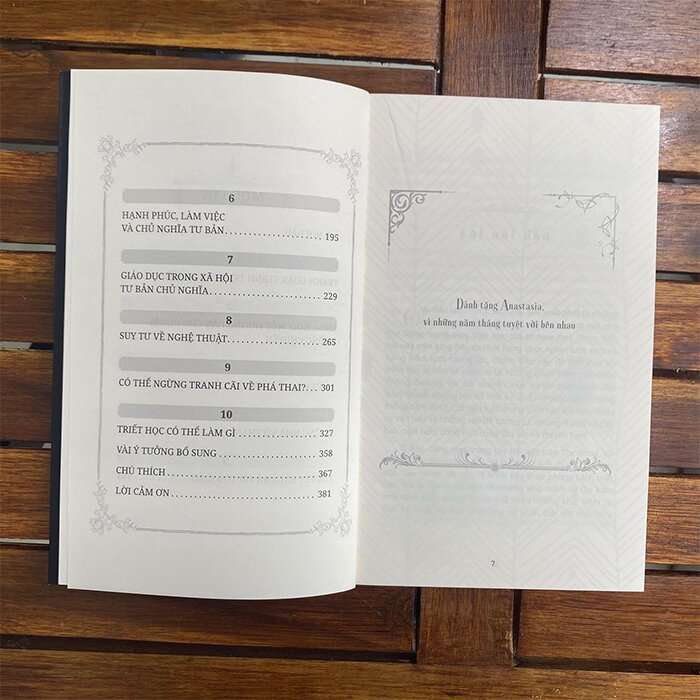 6
HẠNH PHÚC, LÀM VIỆC
VÀ CHỦ NGHĨA TƯ BẢN........................ 195
7
GIÁO DỤC TRONG XÃ HỘI
TƯ BẢN CHỦ NGHĨA........................... 229
8
SUY TƯ VỀ NGHỆ THUẬT........................ 265
9
CÓ THỂ NGỪNG TRANH CÃI VỀ PHÁ THAI?... 301
10
TRIẾT HỌC CÓ THỂ LÀM GÌ.................... 327
VÀI Ý TƯỞNG BỔ SUNG........................ 358
CHÚ THÍCH.................................. 367
LỜI CẢM ƠN................................. 381
Dành tặng Anastasia,
vì những năm tháng tuyệt vời bên nhau
7